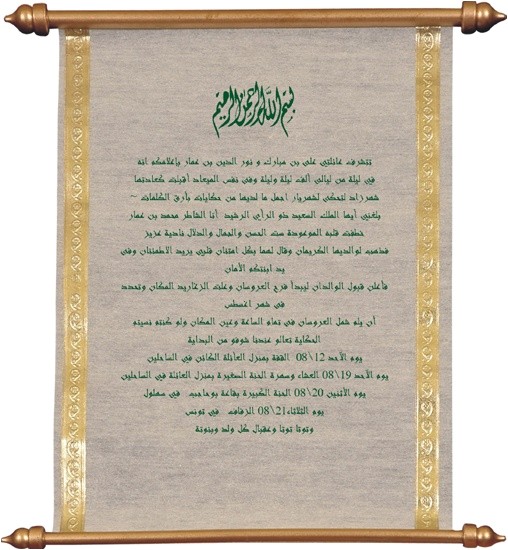 بسم الله الرحمن الرحيم
تتشرف عائلتي علي بن مبارك و نور الدين بن عمار بإعلامكم انه
في ليلة من ليالي ألف ليلة وليلة وفي نفس الميعاد أقبلت كعادتها
شهرزاد لتحكي لشهريار اجمل ما لديها من حكايات بأرق الكلمات ~
بلغني أيها الملك السعيد ذو الرأي الرشيد أنا الشاطر محمد بن عمار
خطفت قلبه الموعودة ست الحسن والجمال والدلال نادية عزيز
فذهب لوالديها الكريمان وقال لهما بكل امتنان قلبي يريد الاطمئنان وفي
يد ابنتكم الأمان
فأعلن قبول الوالدان ليبدأ فرح العروسان وعلت الزغاريد المكان وتحدد
في شهر اغسطس
أن يلم شمل العروسان في تمام الساعة وعين المكان ولو كنتم نسيتم
الحكاية تعالو عندنا شوفو من البداية
يوم الأحد 12\08 القفة بمنزل العائلة الكائن في الساحلين
يوم الأحد 19\08 العشاء وسهرة الحنة الصغيرة بمنزل العائلة في الساحلين
يوم الأثنين 20\08 الحنة الكبيرة بقاعة بوحاجب في سهلول
يوم الثلاثاء 21\08 الزفاف في تونس
وتوتا توتا وعقبال كل ولد وبنوتة